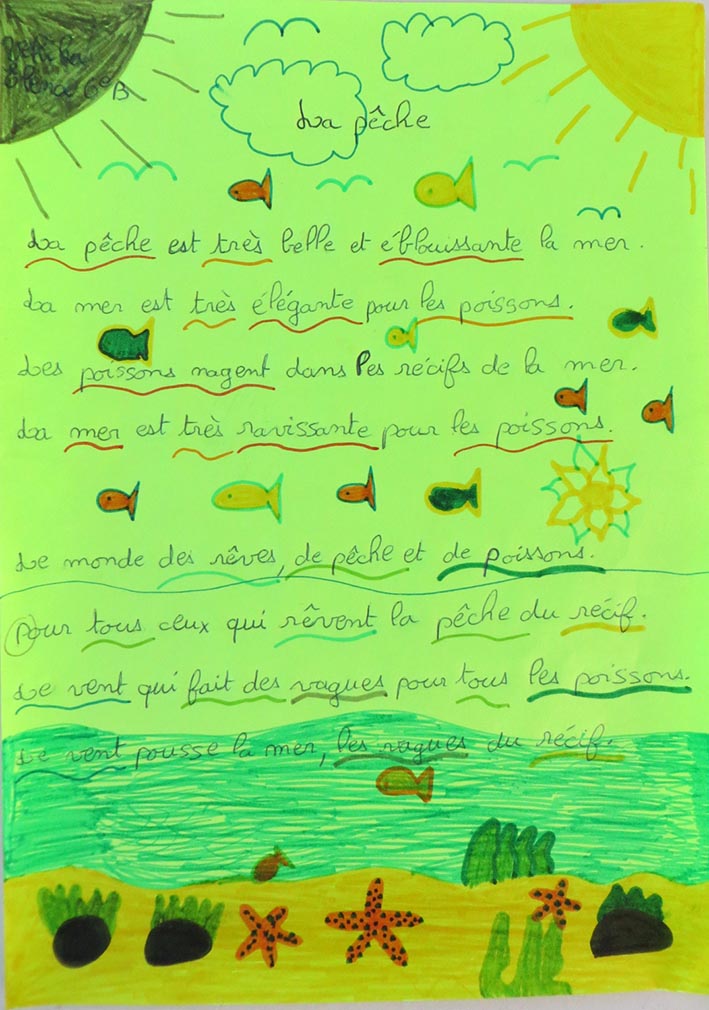 6eB
La pêche
La pêche est très belle et éblouissante la mer.
La mer est très élégante pour les poissons.
Les poissons nagent dans les récifs de la mer.
La mer est très ravissante pour les poissons.
Le monde des rêves, de pêche et de poissons.
Pour tous ceux qui rêvent la pêche du récif.
Le vent qui fait des vagues pour tous les poissons.
Le vent pousse la mer, les vagues du récif.